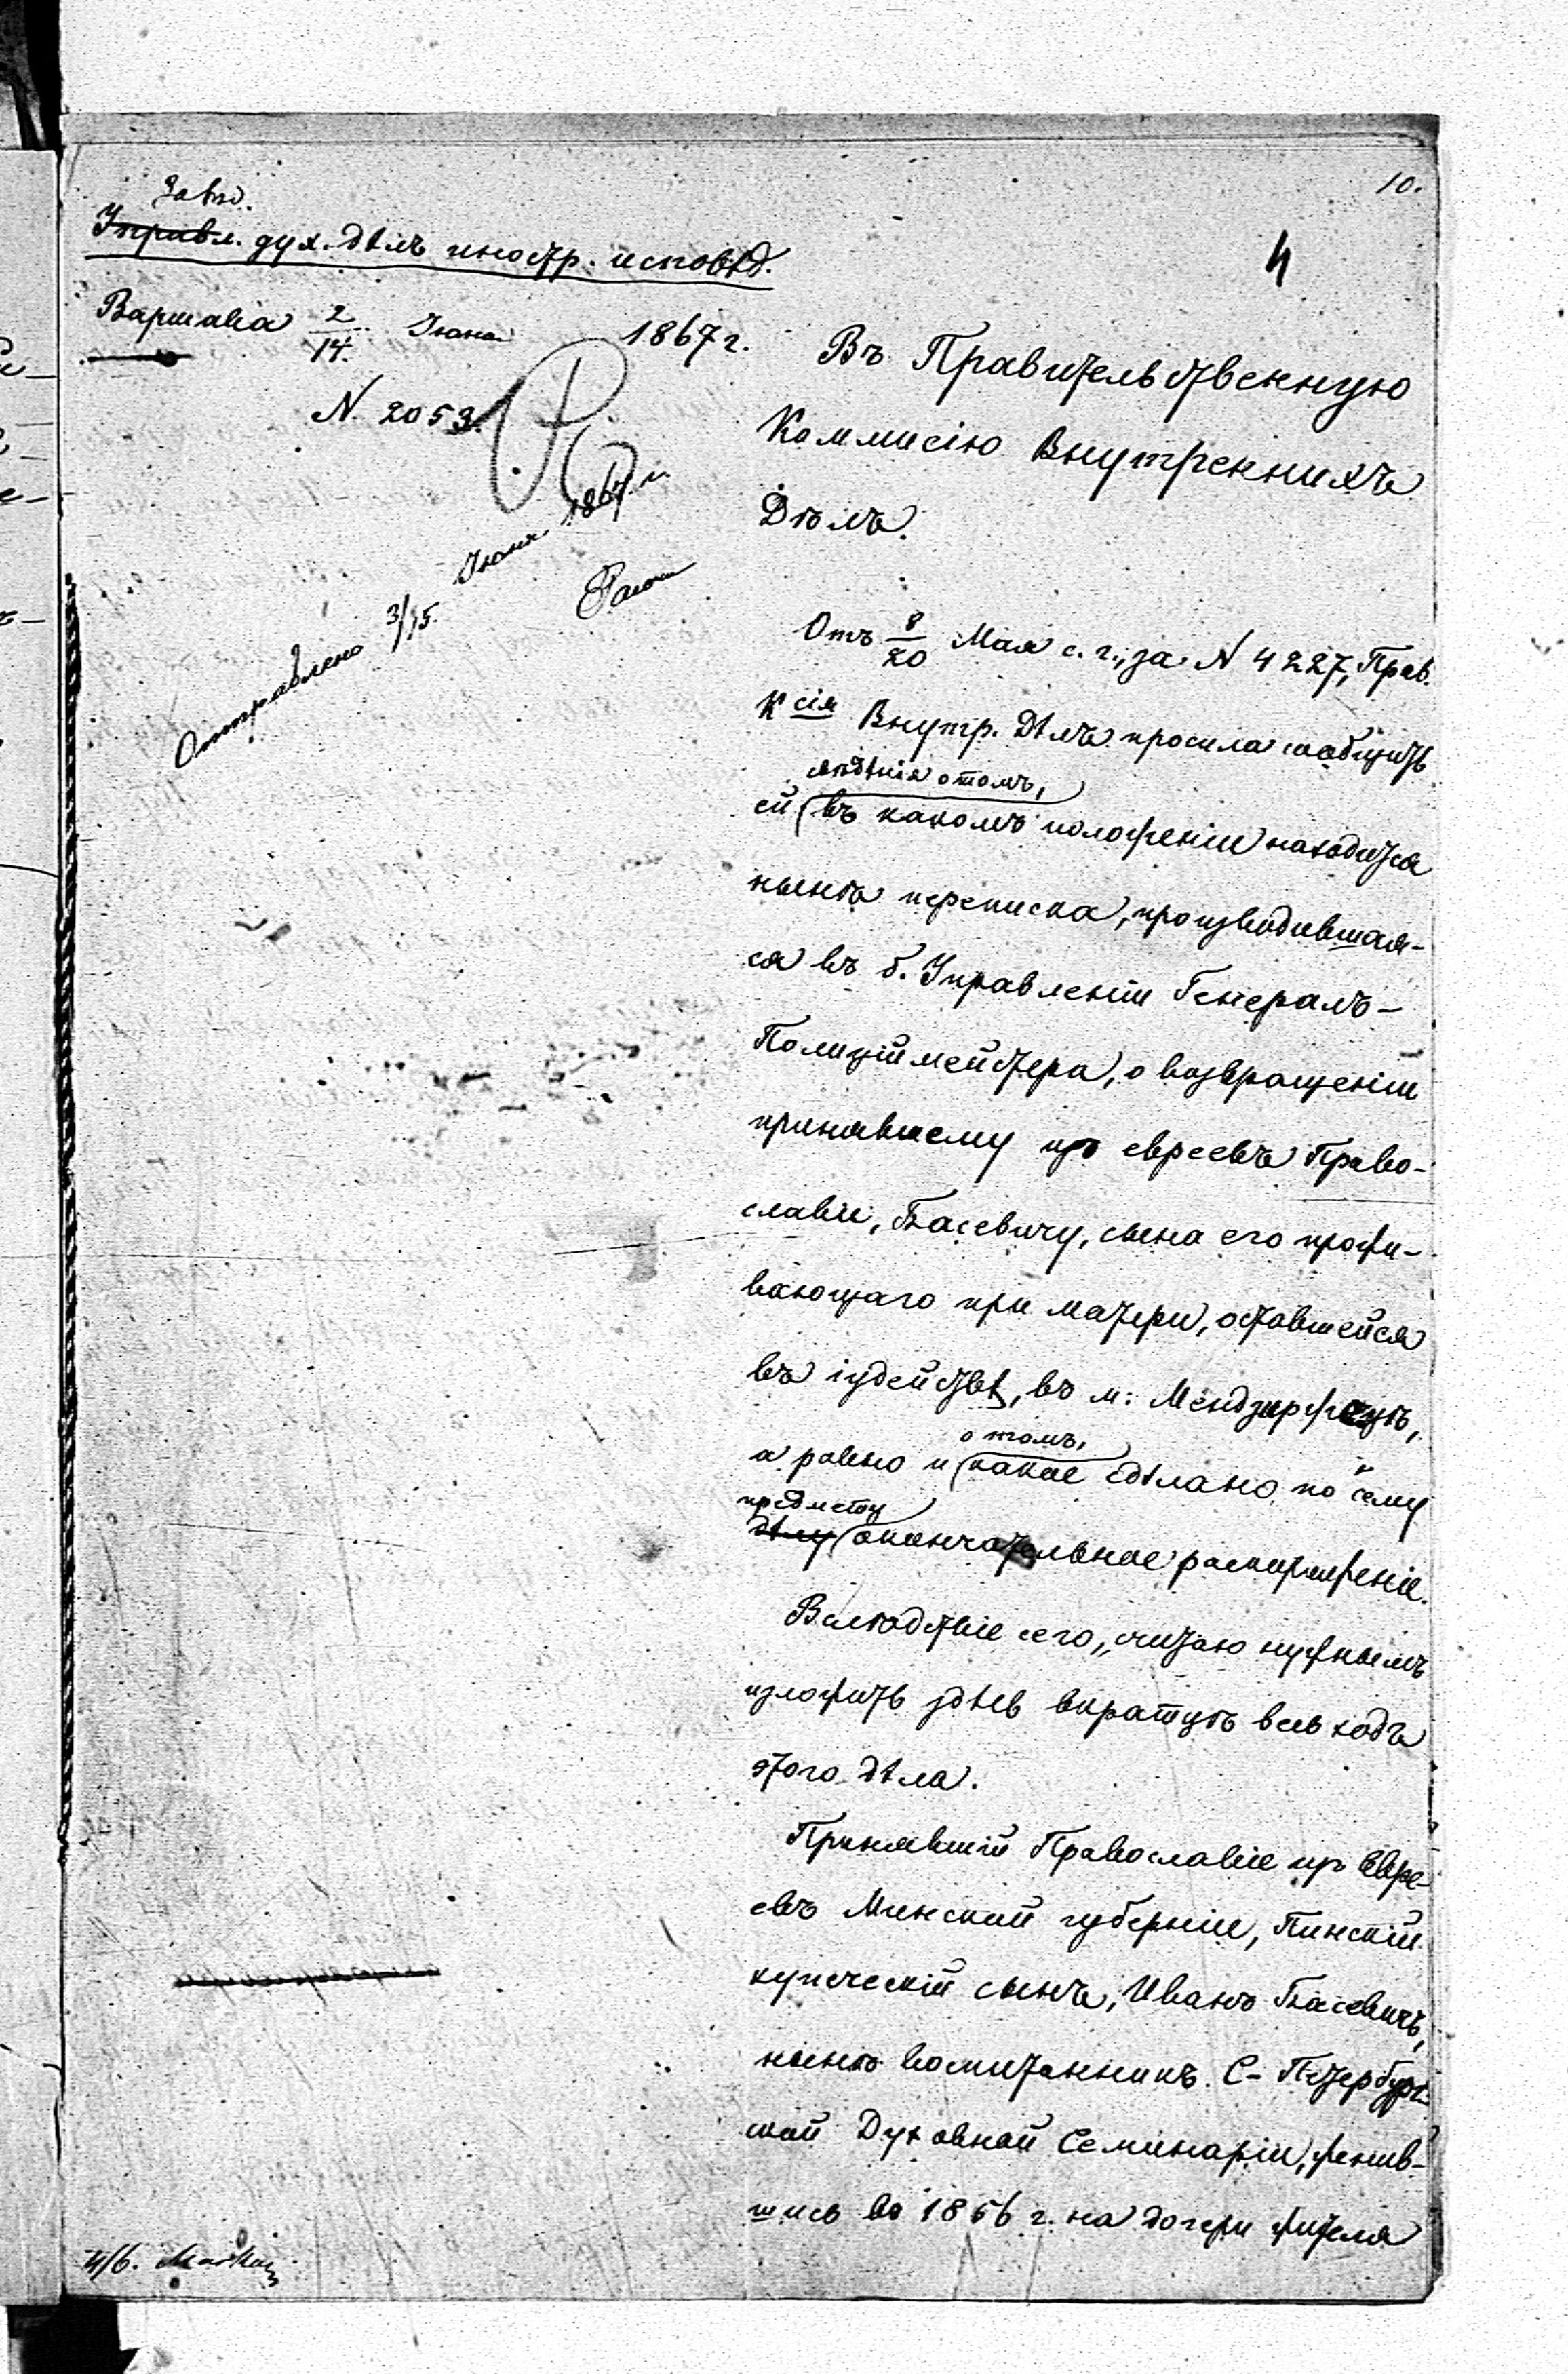 10.
4
Завѣд.
Управл. дух. дѣлъ иностр. исповѣд.
Варшава 2/14 Іюня 1867 г.
N. 2053.
Отправлено 3/15. Іюня 1867 г.
Въ Правительственную
Коммисію Внутреннихъ
Дѣлъ.
Отъ 8/20 Мая с. г., за N 4227, Прав.
К сія Внутр. Дѣлъ просила сообщить
свѣдѣнія о томъ,
ей въ какомъ положеніи находится
нынѣ переписка, производившая-
ся въ б. Управленіи Генералъ-
Полиціймейстера, о возвращеніи
принявшему изъ евреевъ Право-
славіе, Басевичу, сына его прожи-
вающаго при матери, оставшейся
въ іудействѣ, въ м: Мендзиржецѣ,
о томъ,
а равно и какое сдѣлано по сему
предмету
дѣлу окончательное распоряженіе.
Вслѣдствіе сего, считаю нужнымъ
изложить здѣсь вкратцѣ весь ходъ
этого дѣла.
Принявшій Православіе изъ Евре-
евъ Минской губерніи, Пинскій
купеческій сынъ, Иванъ Басевичъ,
нынѣ воспитанникъ С-Петербург-
ской Духовной Семинаріи, женив-
шись въ 1856 г. на дочери жителя
4/6.